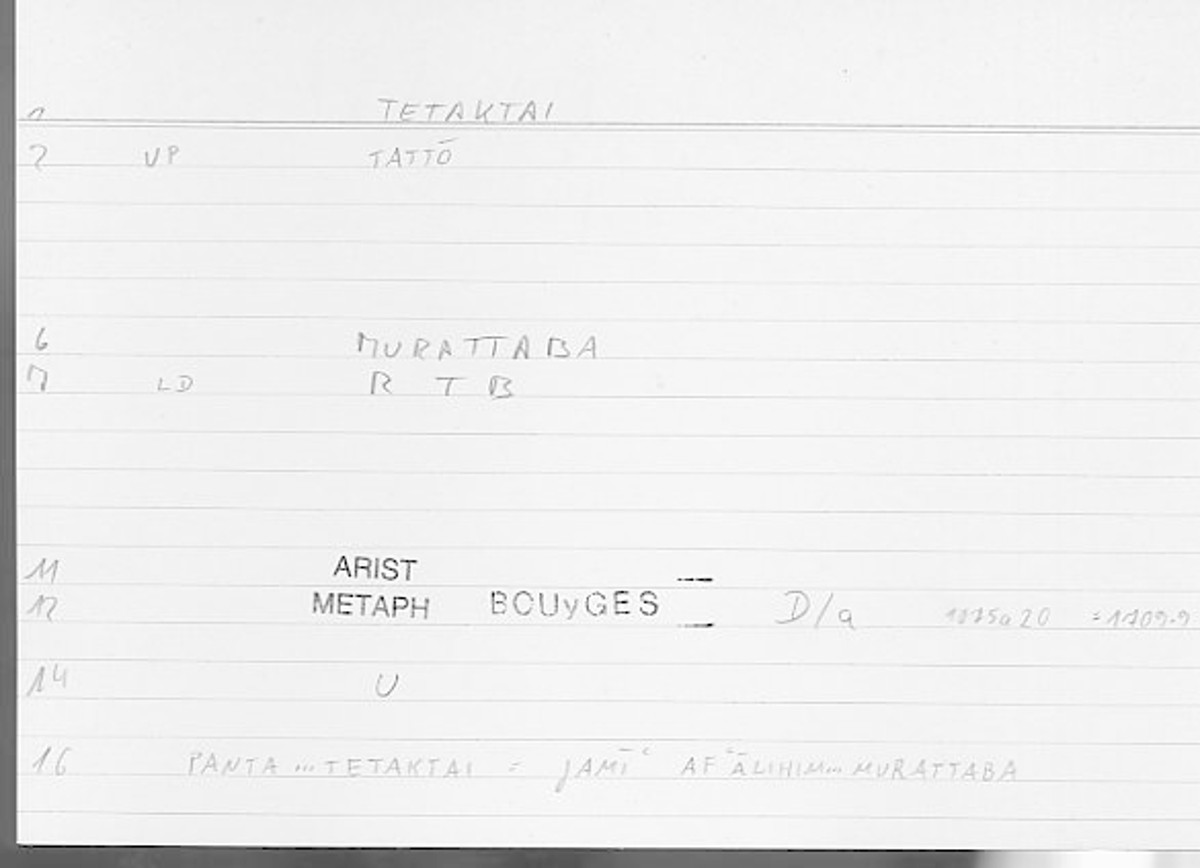 1 TETAKTAI
2 VP TATTŌ
6 MURATTABA
7 LD R T B
11 ARIST
12 METAPH BOUyGES D/a 1075a20 =1709.9
14 U
16 PANTA ... TETAKTAI = JAMĪʿ AFʿĀLIHIM... MURATTABA